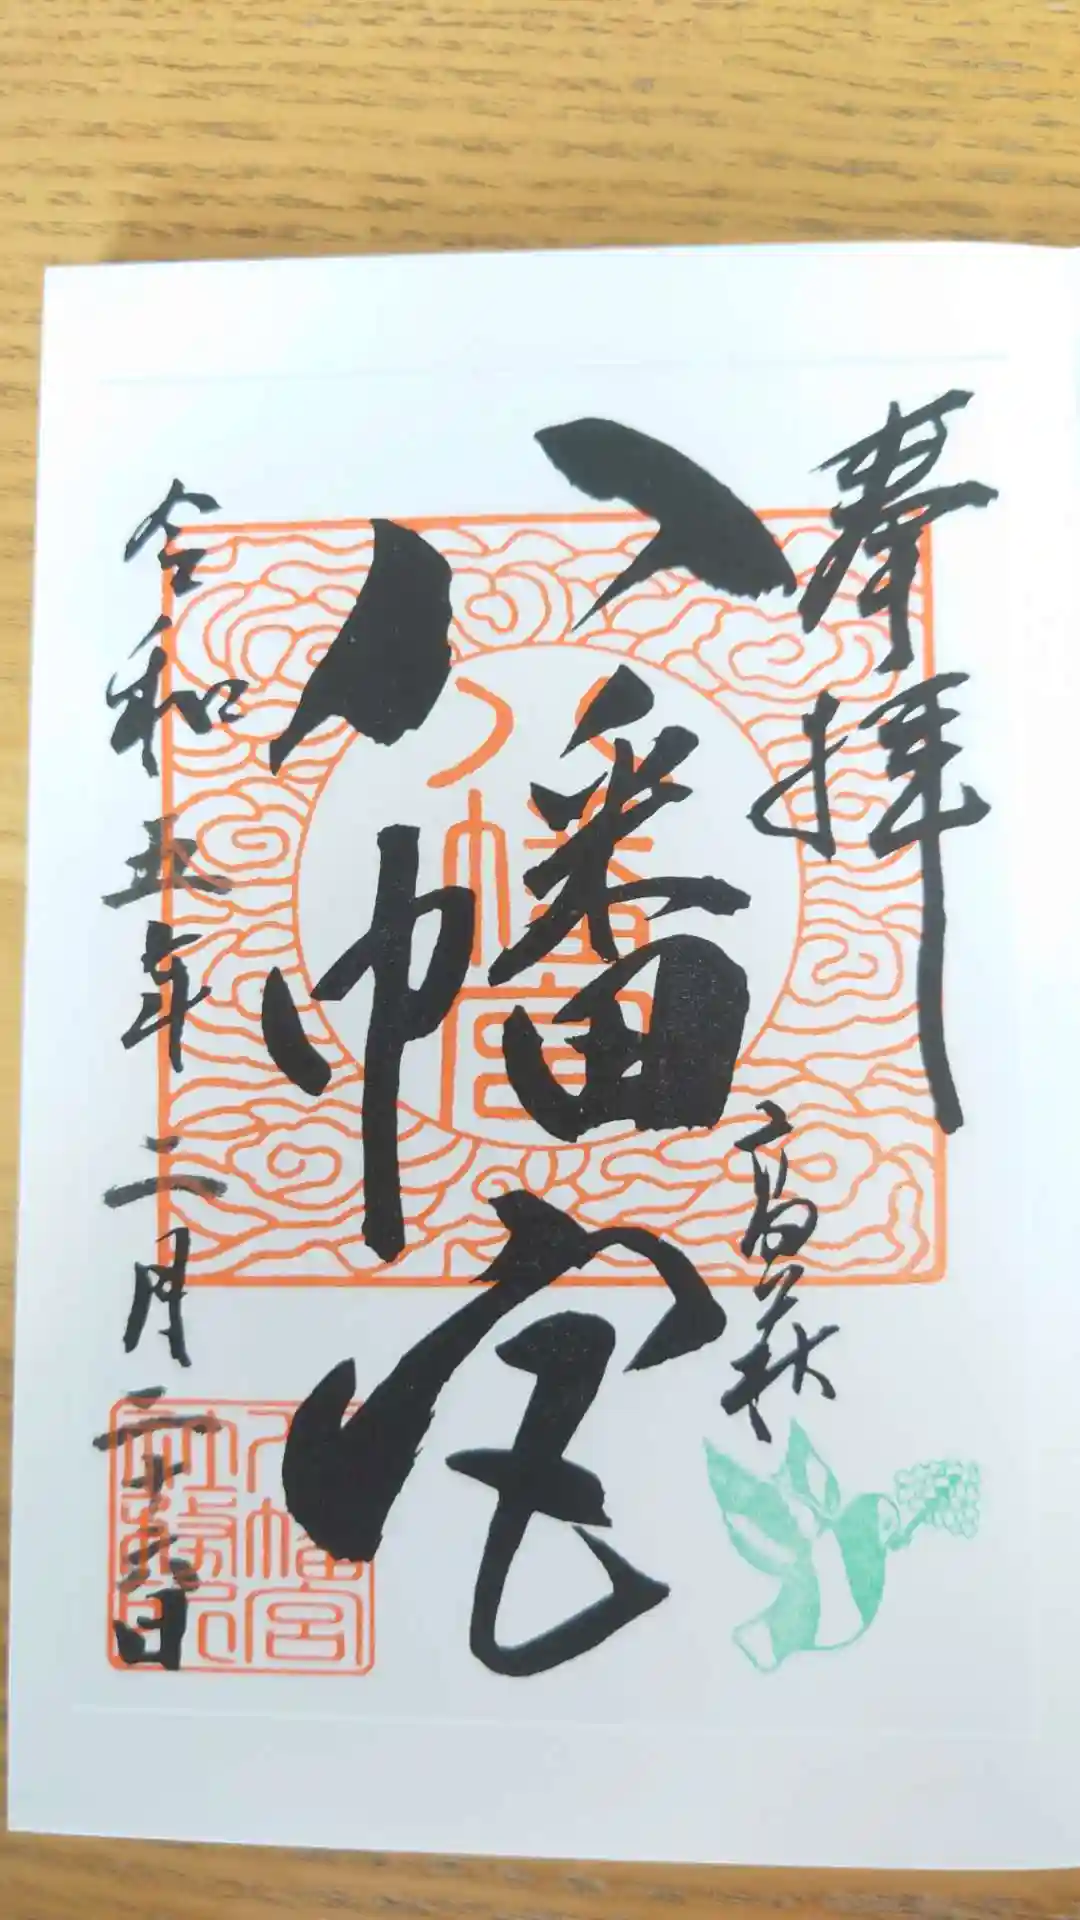 奉拝
高萩
八幡宮
八幡宮
令和五年二月二十六日
八幡宮
社務所